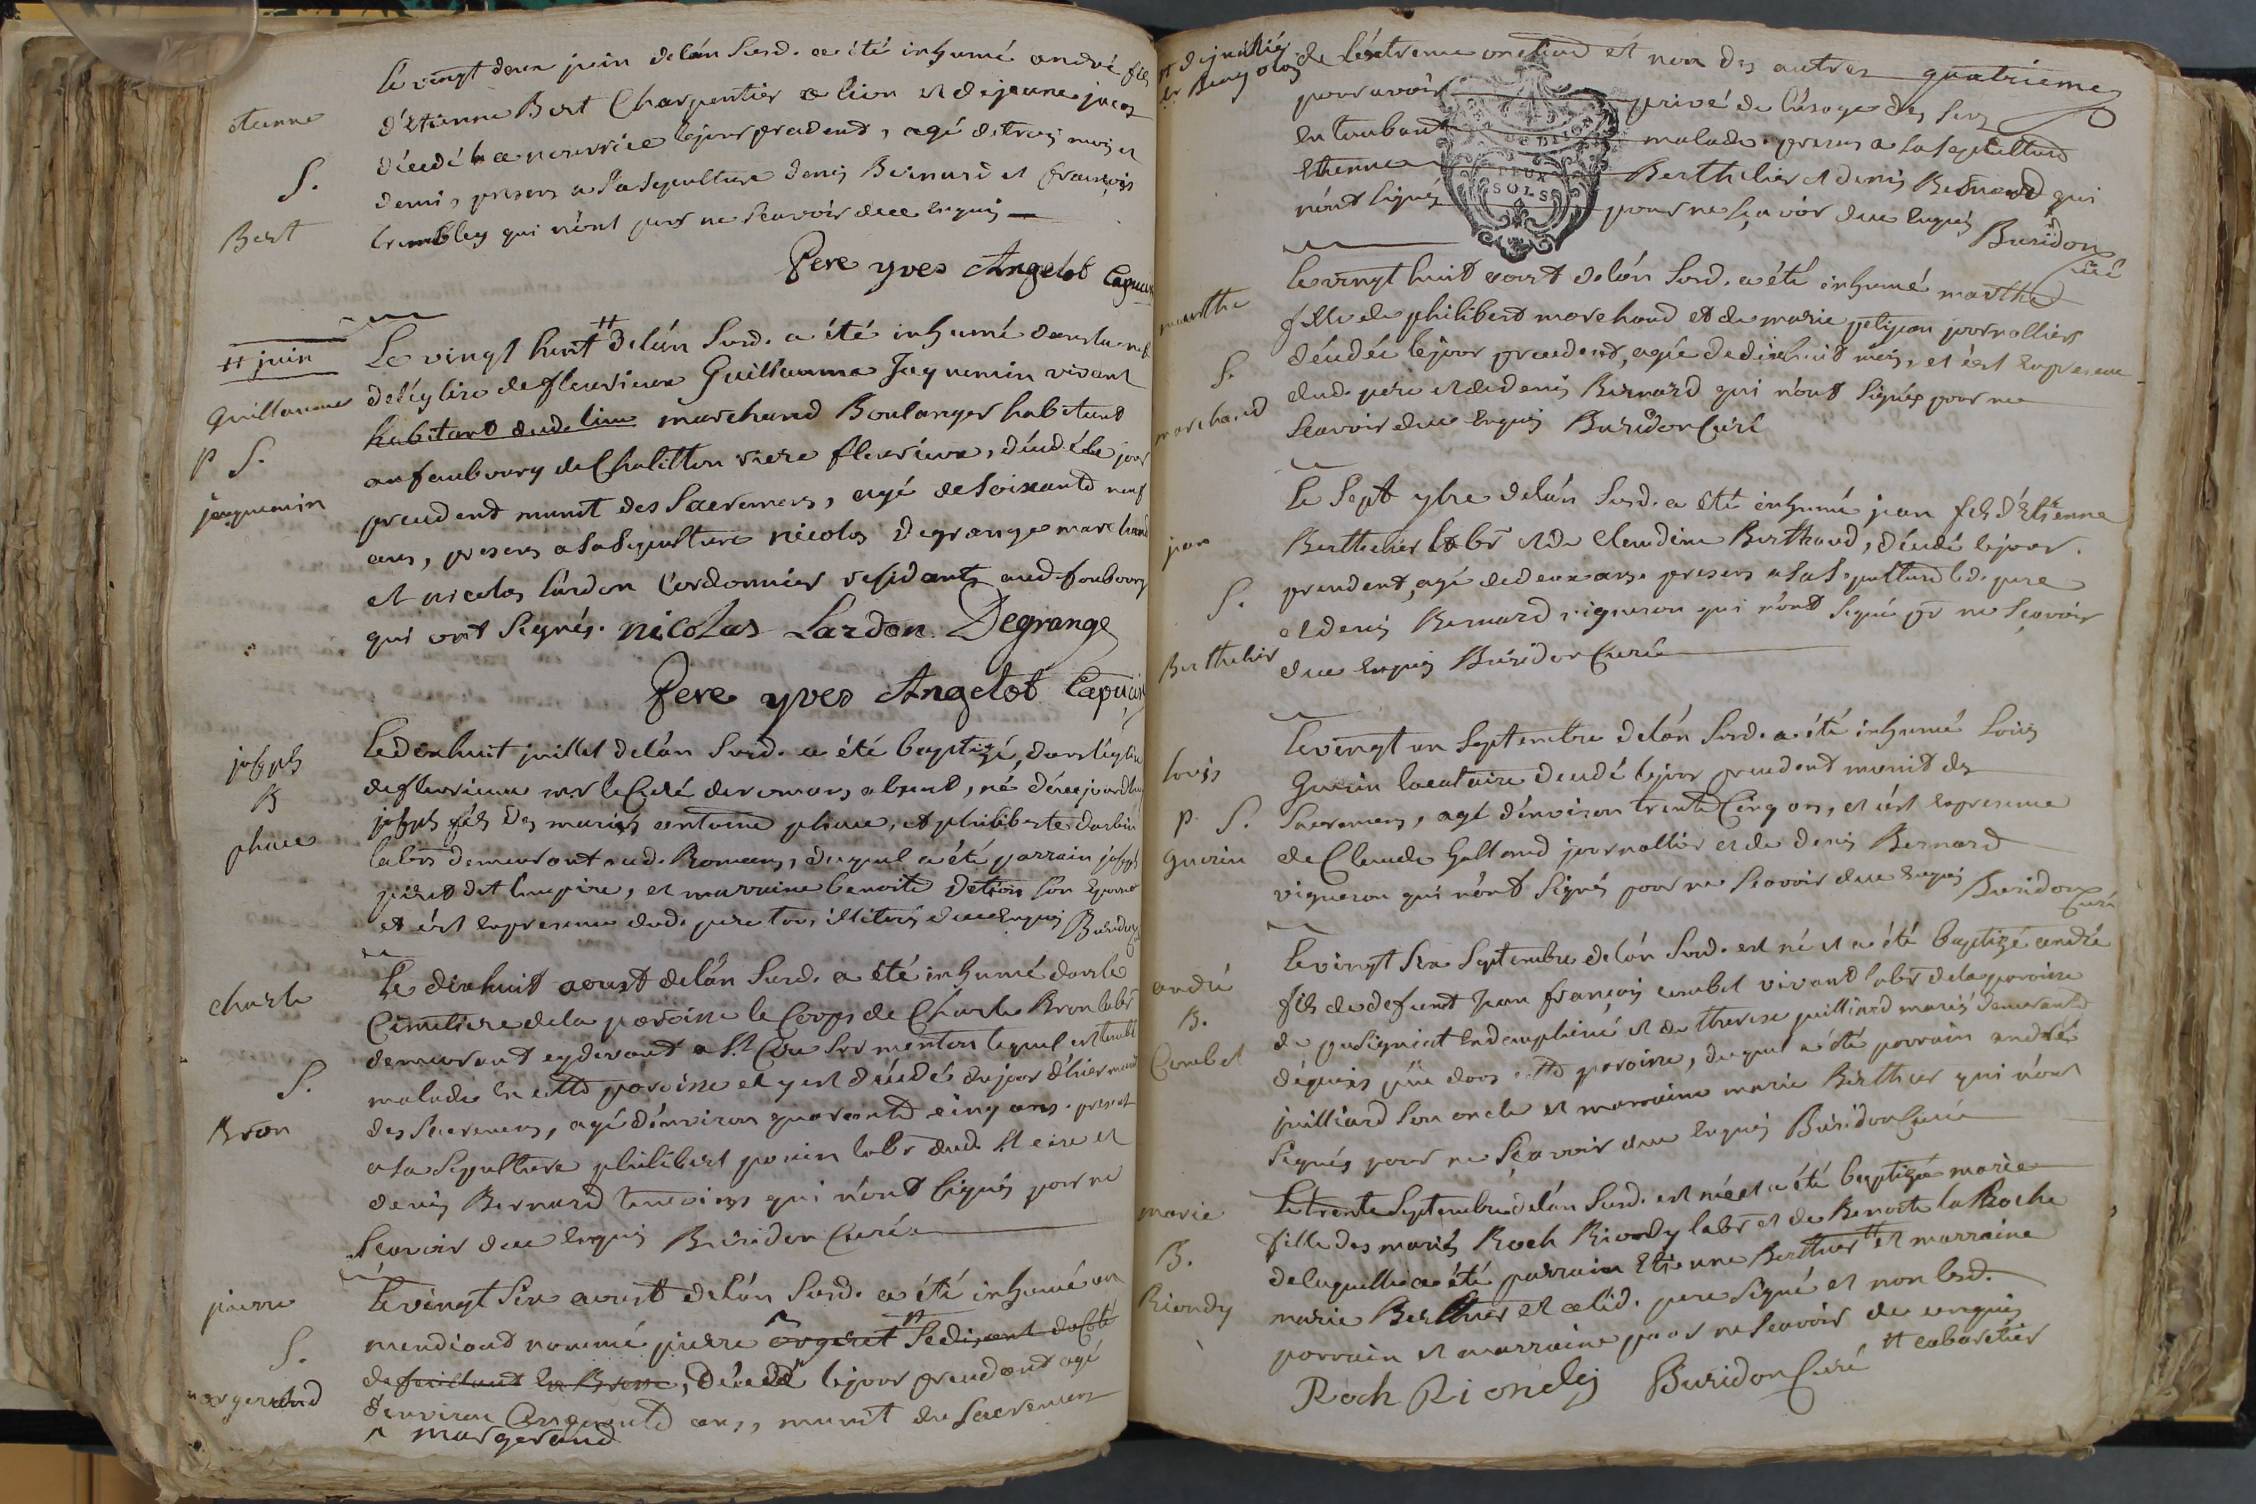 Le vingt deux juin de l'án Susd. a été inhumé andré fils
d'Etienne Bert Charpentier a lion et de jeanne
décédé la nourrice le jour precedent, agé de trois mois et
demi, presens a la Sepulture denis Bernard et françois
trembley qui n'ont pour ne Scavoir de ce enquis
etienne
S.
Bert
Pere yves Angelot Capucin
# juin
Guillaume
P S.
jaquemin
Le vingt huit # de l'án Susd. a été inhumé dans la nef
de l'eglise de fleurieux Guillaume Jaquemin vivant
habitant dud. lieu marchand Boulanger habitant
au faubourg de Chalitton riere fleurieux, décédé le jour
precedent munit des Sacremens, agé de soixante neuf
ans, presens a la Sepulture nicolas Degrange marchand
et nicolas Lardon Cordonnier residants aud. faubourg
qui ont Signés. nicolas Lardon. Degrange
Pere yves Angelot Capucin
joseph
B
Le dixhuit juillet de l'án Susd. a été baptizé, dans l'église
de fleurieux mr le Curé de romans absent, né d'aujourdhuy
joseph fils des mariés antoine et philiberte
labrs demeurant aud. Romans, duquel a été parrain joseph
dit l'empire, et marraine benoite
et c'est en presence dud. pere tous illiterés de ce enquis Buridon
Charle
S.
Bron
Le dixhuit aoust de l'án Susd. a été inhumé dans le
Cimetiere de la paroisse le Corps de Charle Bron labr
demeurant cy devant a St. Cire Sur menton lequel est tombé
malade en cette paroisse et y est décédé du jour d'hier munit
des Sacremens, agé d'environ quarante cinq ans. present
a la Sepulture philibert labr dud. St cire et
denis Bernard temoins qui n'ont Signés pour ne
Scavoir de ce enquis Buridon Curé
pierre
S.
margerand
Le vingt Six aoust de l'án Susd. a été inhumé un
mendiant nommé pierre ^ orgeret # Se disant
de en Bresse, décédé le jour precedent agé
d'environ Cinquante ans, munit des Sacremens
^ margerand
de l'extreme onction et non des autres quatrieme
pour avoir privé de l'usage des Sens
en tombant malade. presens a la Sepulture
Etienne Berthelier et denis Bernard qui
n'ont Signés pour ne Sçavoir de ce enquis
Buridon Curé
DEUX
SOLS
marthe
S.
marchand
Le vingt huit aout de l'án Susd. a été inhumé marthe
fille de philibert marchand et de marie petijean journalliers
décédée le jour precedent, agée de dixhuit mois, et c'est en presence
dud. pere et de denis Bernard qui n'ont Signés pour ne
Scavoir de ce enquis Buridon Curé
jean
S.
Berthelier
Le Sept 7bre de l'án Susd. a été inhumé jean fils d'Etienne
Berthelier labr et de Claudine Berthaud, décédé le jour
precedent, agé de deux ans. presens a la Sepulture led. pere
et denis Bernard vigneron qui n'ont Signé pr ne Sçavoir
de ce enquis Buridon Curé
louis
P. S.
Guerin
Le vingt un Septembre de l'án Susd. a été inhumé Louis
Guerin locataire décédé le jour precedent munit des
Sacremens, agé d'environ trente Cinq ans, et c'est en presence
de Claude Galland journallier et de denis Bernard
vigneron qui n'ont Signés pour ne Scavoir de ce enquis Buridon Curé
andré
B.
Combet
Le vingt Six Septembre de l'án Susd. est né et a été baptizé andré
fils de defunt Jean françois combet vivant labr de la paroisse
de pusigniat en dauphiné et de therese juilliard mariés demeurants
depuis peu dans cette paroisse, duquel a été parrain andré
juilliard Son oncle et marraine marie Berthier qui n'ont
Signés pour ne Sçavoir de ce enquis Buridon Curé
marie
B.
Riondy
Le trente Septembre de l'án Susd. est née et a été baptizée marie
fille des mariés Roch Riondy labr et de Benoite la Roche
de laquelle a été parrain Etienne Berthier # et marraine
marie Berthier et a led. pere Signé et non lesd.
parrain et marraine pour ne Scavoir de ce enquis
Roch Riondy Buridon Curé # cabaretier